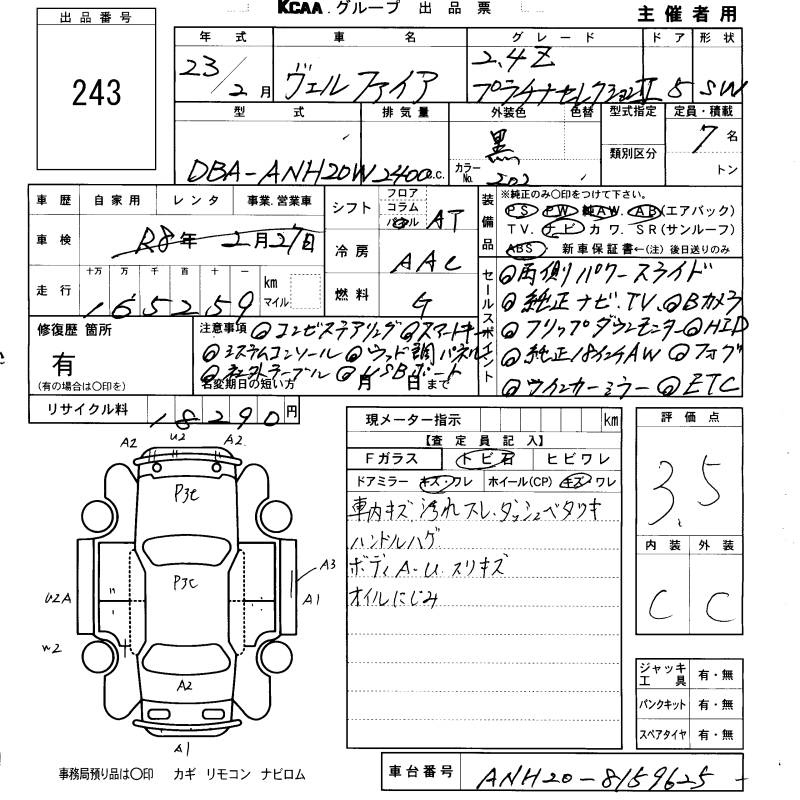 KCAA.グループ 出品票
主催者用
出品番号
243
年式 車名 グレード ドア 形状
23/2月 ヴェルファイア 2.4Z プラチナセレクションⅡ 5 SW
型式 排気量 外装色 色替 型式指定 定員・積載
DBA-ANH20W 2400c.c. 黒 類別区分 7名
カラーNo. 202 トン
車歴 自家用 レンタ 事業.営業車
シフト フロア コラム パネル AT
車検 R8年 2月27日
冷房 AAC
走行 十万 万 千 百 十 一 km マイル
165259
燃料 G
装備品 ※純正のみ〇印をつけて下さい。
PS PW 純AW. AB(エアバック)
TV. ナビ カワ. SR(サンルーフ)
ABS 新車保証書←(注)後日送りのみ
セールスポイント
◎両側パワースライド
◎純正ナビ.TV.◎Bカメラ
◎フリップダウンモニター◎HID
◎純正18インチAW ◎フォグ
◎ウインカーミラー ◎ETC
修復歴 箇所
有
(有の場合は〇印を)
注意事項 ◎コンビステアリング◎スマートキー
◎システムコンソール ◎ウッド調パネル
◎社外テーブル ◎USBポート
名変期日の短い方 月 日まで
リサイクル料 18290円
現メーター指示 km
【査定員記入】
Fガラス トビ石 ヒビワレ
ドアミラー キズ・ワレ ホイール(CP) キズ・ワレ
車内キズ 汚れ スレ.ダッシュベタツキ
ハンドルハゲ
ボディA-U スリキズ
オイルにじみ
評価点
3.5
内装 外装
C C
ジャッキ工具 有・無
パンクキット 有・無
スペアタイヤ 有・無
A2 U2 A2
P3C
P3C
A3
U2A A1
W2
A2
A1
事務局預り品は〇印 カギ リモコン ナビロム
車台番号 ANH20-8159625